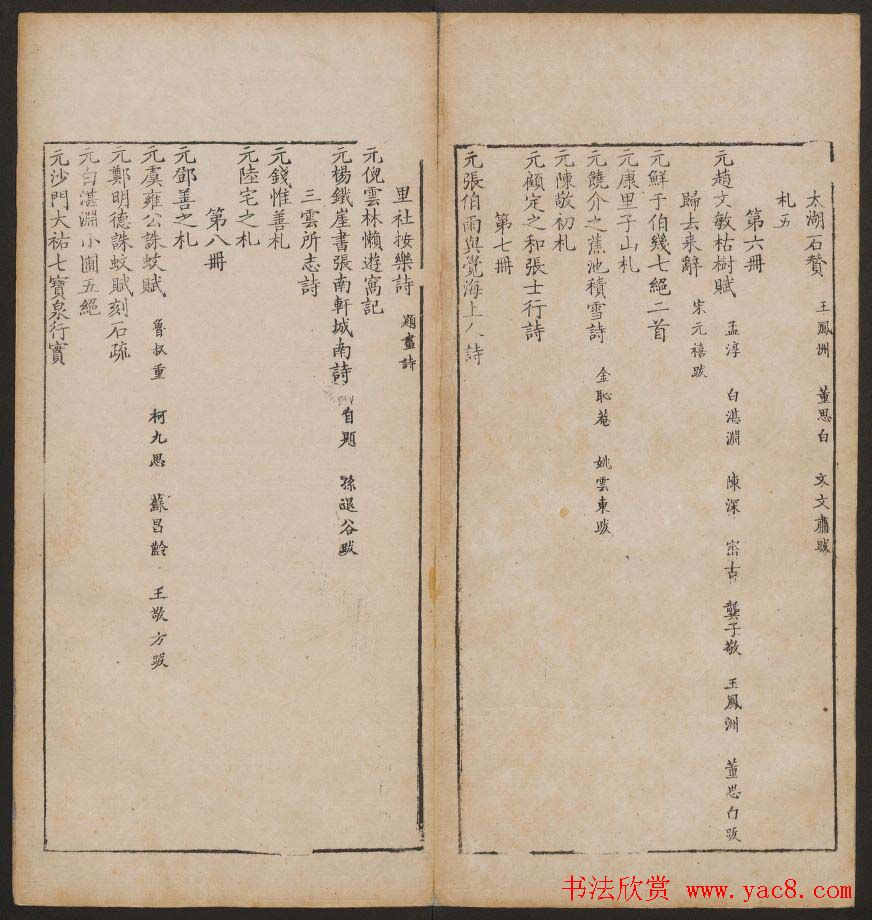 太湖石贊 王鳳洲 董思白 文文肅跋
札五
第六冊
元趙文敏枯樹賦 孟淳 白湛淵 陳深 宗古 龔子敬 王鳳洲 董思白跋
歸去來辭 宋元禧跋
元鮮于伯幾七絕二首
元康里子山札
元饒介之蕉池積雪詩 金恥菴 姚雲東跋
元陳敬初札
元顧定之和張士行詩
第七冊
元張伯雨與覺海上人詩
里社按樂詩 題畫詩
元倪雲林懶遊窩記
元楊鐵崖書張南軒城南詩 自題 孫退谷跋
三雲所志詩
元錢惟善札
元陸宅之札
第八冊
元鄧善之札
元虞雍公誅蚊賦 魯叔重 柯九思 蘇昌齡 王敬方跋
元鄭明德誅蚊賦刻石疏
元白湛淵小圃五絕
元沙門大祐七寶泉行實
书法欣赏 www.yac8.com